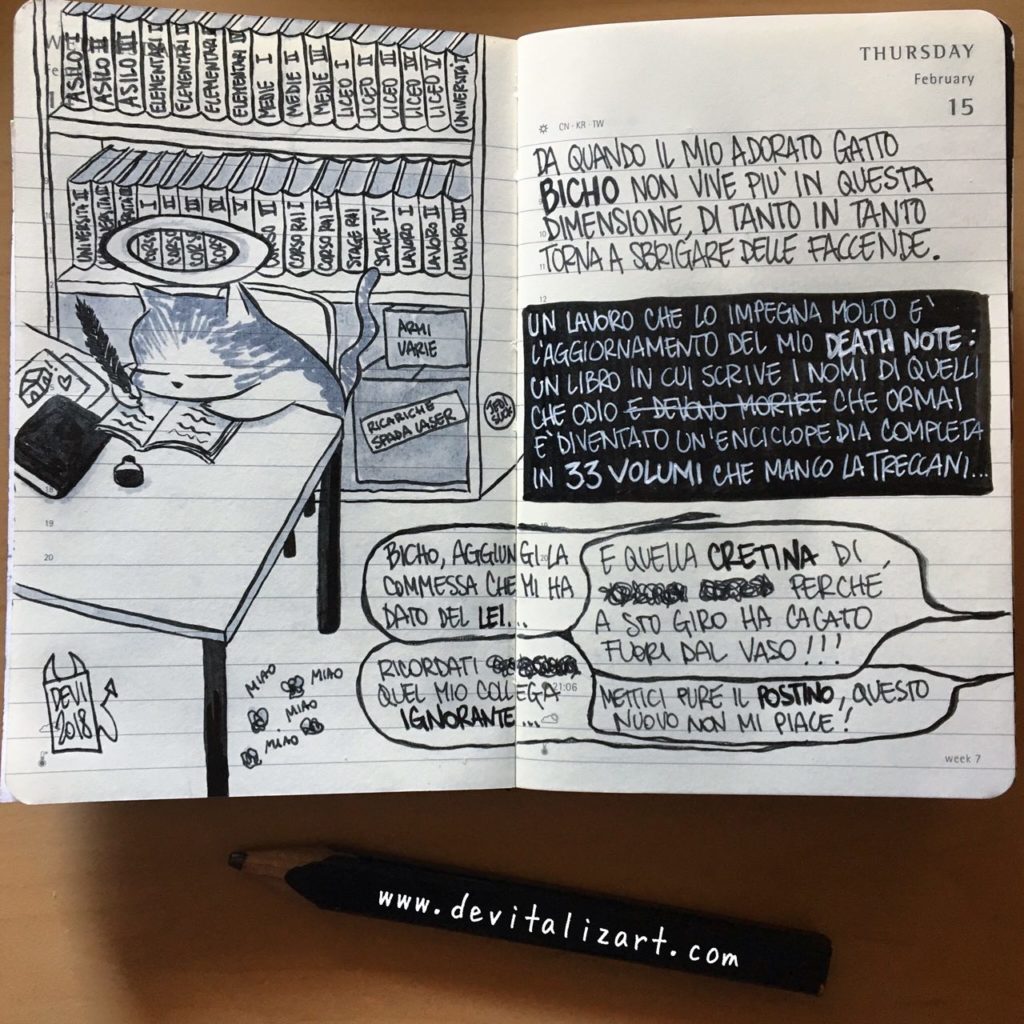 ASILO I
ASILO II
ASILO III
ELEMENTARI I
ELEMENTARI
ELEMENTARI
ELEMENTARI
MEDIE I
MEDIE II
MEDIE III
LICEO I
LICEO II
LICEO III
LICEO IV
LICEO V
UNIVERSITÀ I
UNIVERSITÀ II
CORSO
CORSO
CORSO
CORSO RAI I
CORSO RAI II
STAGE RAI
STAGE TV
LAVORO I
LAVORO II
LAVORO III
ARMI
VARIE
RICARICHE
SPADA LASER
DEVI
2018
MIAO
MIAO
MIAO
MIAO
THURSDAY
February
15
CN · KR · TW
DA QUANDO IL MIO ADORATO GATTO
BICHO NON VIVE PIU' IN QUESTA
DIMENSIONE, DI TANTO IN TANTO
TORNA A SBRIGARE DELLE FACCENDE.
UN LAVORO CHE LO IMPEGNA MOLTO E'
L'AGGIORNAMENTO DEL MIO DEATH NOTE:
UN LIBRO IN CUI SCRIVE I NOMI DI QUELLI
CHE ODIO E DEVONO MORIRE CHE ORMAI
E' DIVENTATO UN'ENCICLOPEDIA COMPLETA
IN 33 VOLUMI CHE MANCO LA TRECCANI...
BICHO, AGGIUNGI LA
COMMESSA CHE MI HA
DATO DEL LEI...
E QUELLA CRETINA DI
PERCHÉ
A STO GIRO HA CAGATO
FUORI DAL VASO!!!
RICORDATI
QUEL MIO COLLEGA
IGNORANTE...
METTICI PURE IL POSTINO, QUESTO
NUOVO NON MI PIACE!
21:06
week 7
www.devitalizart.com